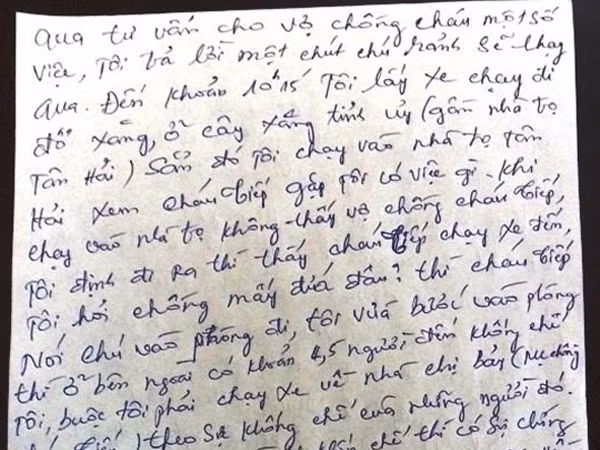 Qua tư vấn cho vợ chồng cháu một số
việc, Tôi trả lời một chút chú rảnh sẽ chạy
qua. Đến khoản 10h15 Tôi lấy xe chạy đi
đổ xăng, ở cây xăng tỉnh ủy (gần nhà trọ
Tân Hải) Sẵn đó Tôi chạy vào nhà trọ Tân
Hải xem cháu Tiếp gặp tôi có việc gì. Khi
chạy vào nhà trọ không thấy vợ chồng cháu Tiếp,
Tôi định đi ra thì thấy cháu Tiếp chạy xe đến,
Tôi hỏi chồng mấy đứa đâu? thì cháu Tiếp
Nói chú vào phòng đi, tôi vừa bước vào phòng
thì ở bên ngoài có khoản 4,5 người đến khống chế
Tôi, buộc tôi phải chạy xe về nhà chị bảy (mẹ chồng
Tiếp) theo sự khống chế của những người đó.
chế thì có sự chứng